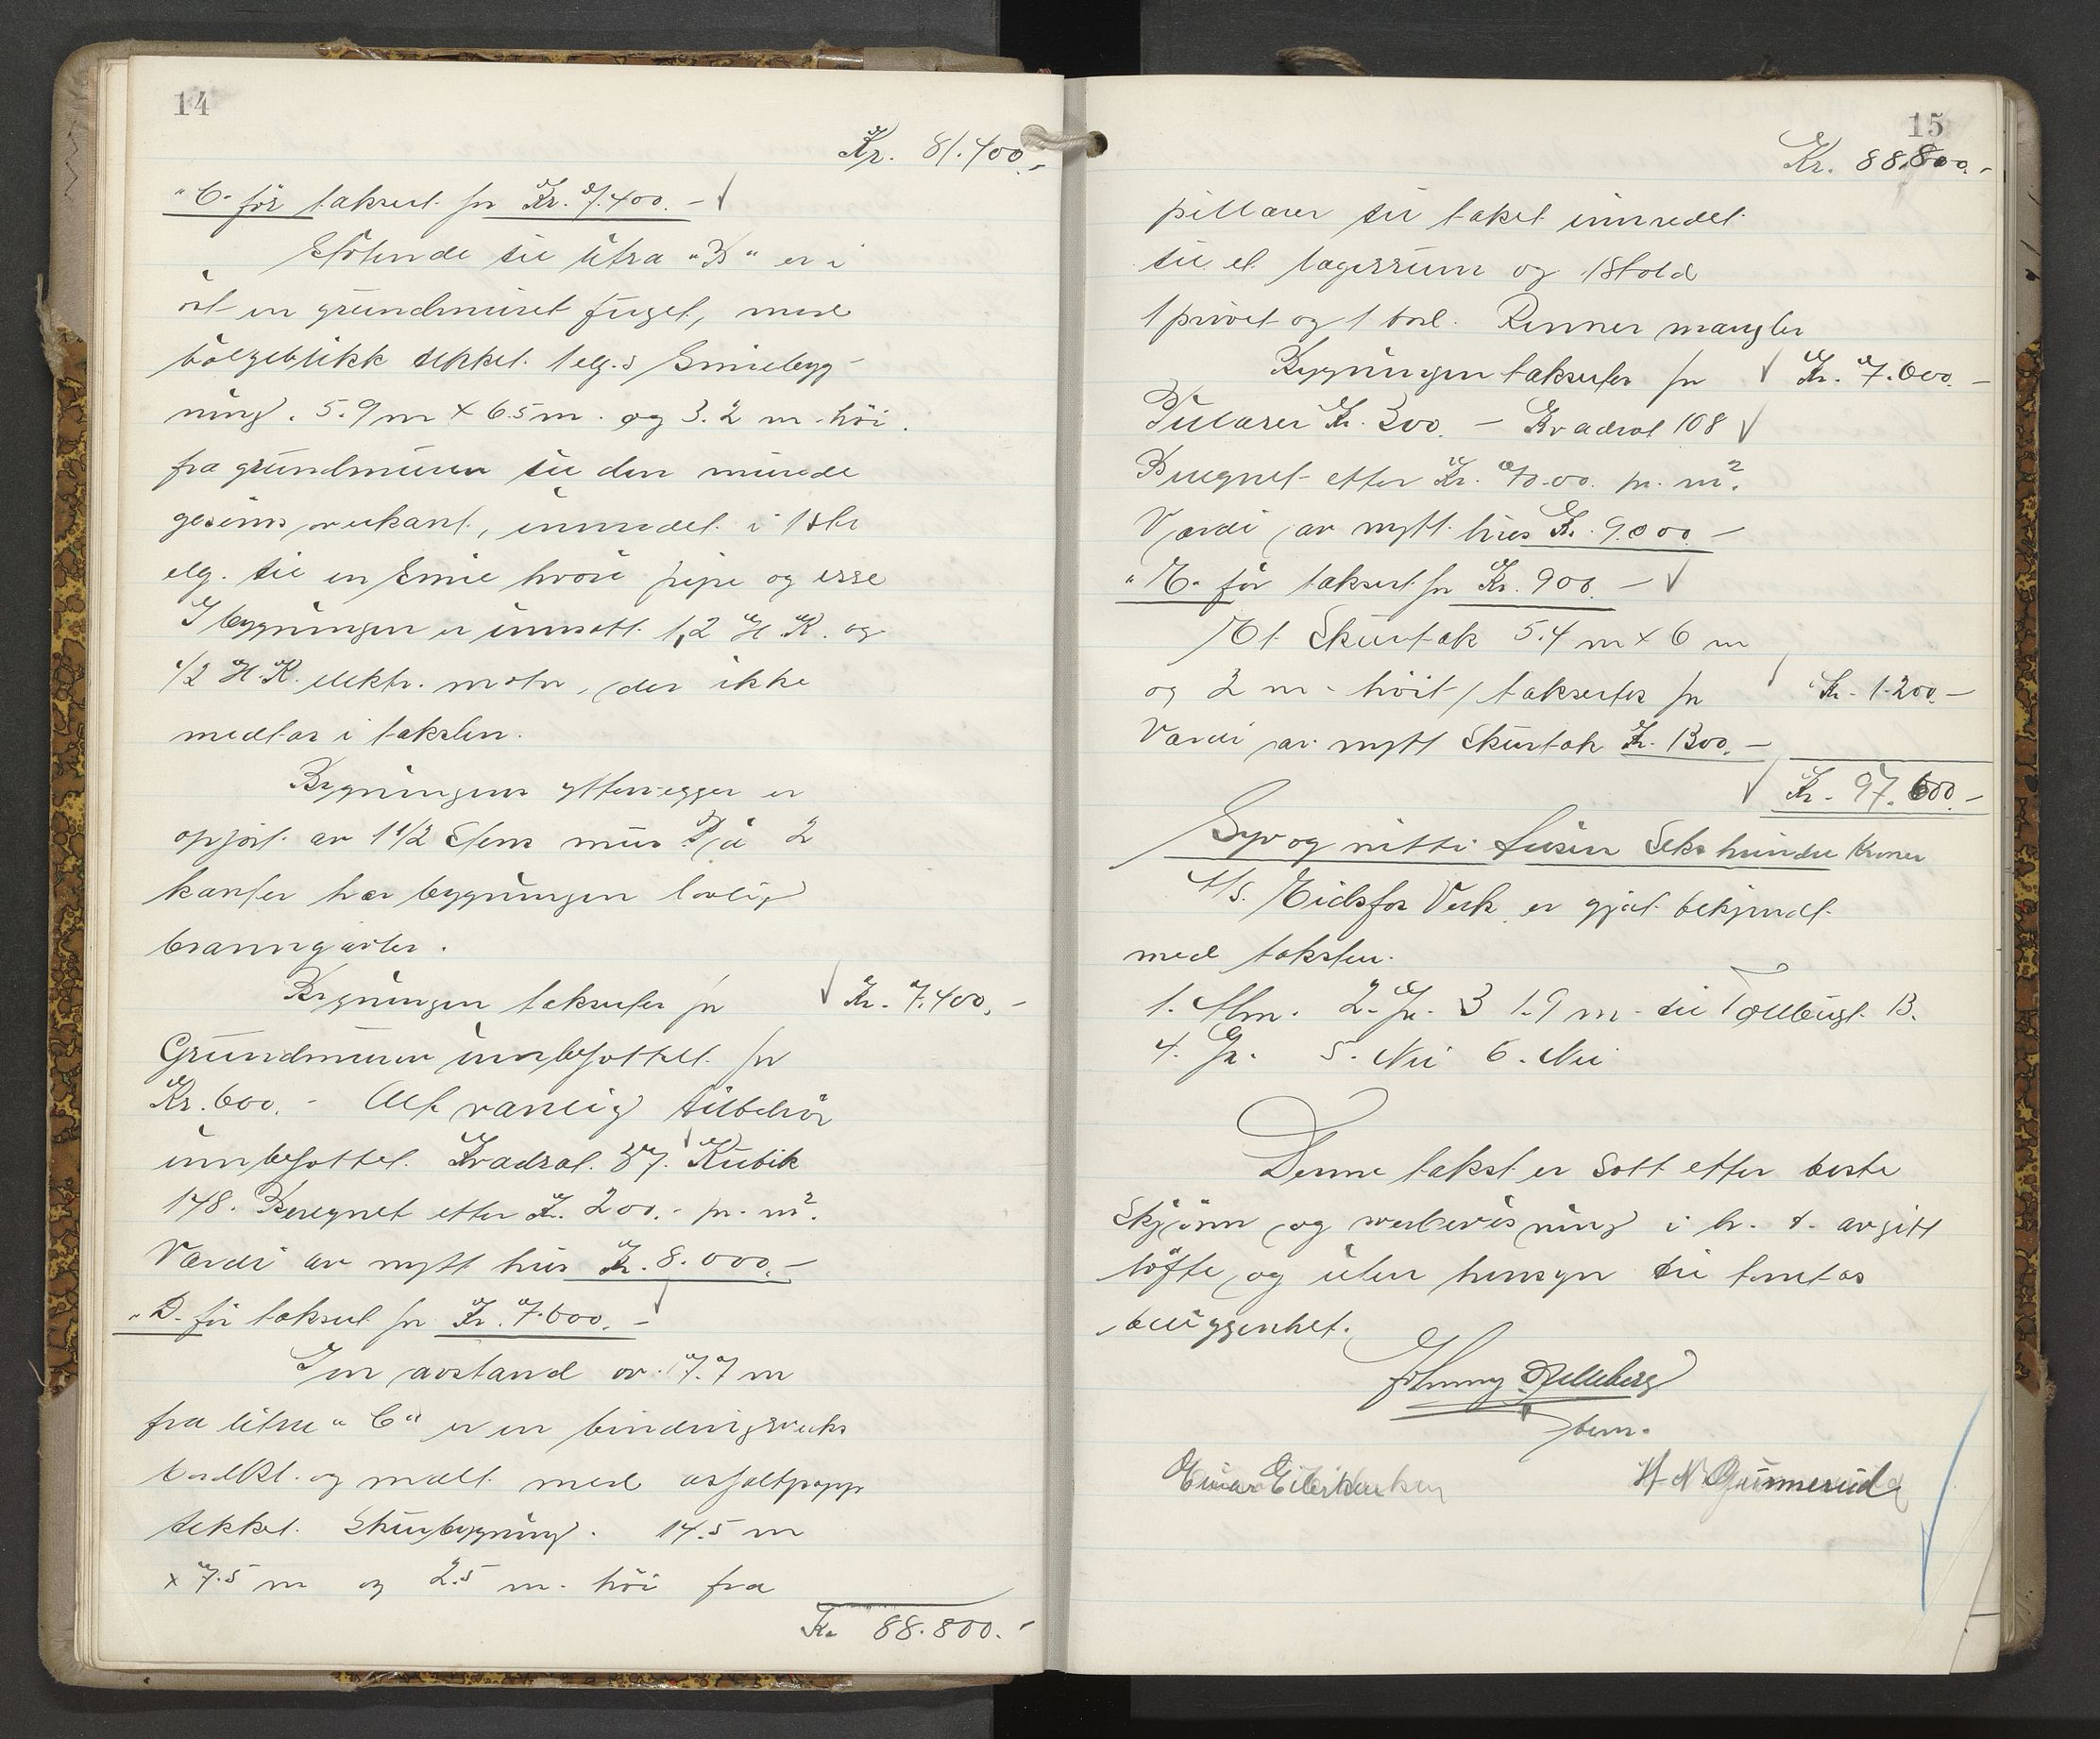 14
Kr. 81.400.-
"C" før taksert for Kr. 7.400.-
Støtende til litra "B" er i
øst en grundmuret fuget, med
bølgeblikk tekket 1 etg.s Smiebyg-
ning. 5.9 m x 6.5 m. og 3.2 m. høi.
fra grundmuren til den murede
gesims overkant, innredet i 1ste
etg. til en Smie hvori pipe og esse
I bygningen er innsatt 1,2 H.K. og
1/2 H.K. elektr. motor, der ikke
medtas i taksten.
Bygningens yttervegger er
opført av 1 1/2 Stens mur På 2
kanter har bygningen lovlig
branngavler.
Bygningen takseres for Kr. 7.400.-
Grundmuren innbefattet for
Kr. 600.- Alt vanlig tilbehør
innbefattet. Kvadrat. 37. Kubik
148. Beregnet etter Kr. 200.- pr. m².
Værdi av nytt hus Kr. 8.000.-
"D" før taksert for Kr. 7.600.-
I en avstand av 7.7 m
fra litra "C" er en bindingsverks
bordkl. og malt med asfaltpapp
tekket Skurbygning. 14.5 m
x 7.5 m og 2.5 m. høi fra
Kr. 88.800.-
15
Kr. 88.800.-
pillarer til taket innredet
til et lagerrum og 1 Stold
1 privet og 1 bod. Renner mangler
Bygningen takseres for Kr. 7.600.-
Pillarer Kr. 300.- Kvadrat 108
Beregnet etter Kr. 70.00. pr. m².
Værdi av nytt hus Kr. 9.000.-
"E" før taksert for Kr. 900.-
Et Skurtak 5.4 m x 6 m
og 2 m. høit, takseres for Kr. 1.200.-
Værdi av nytt Skurtak Kr. 1300.-
Kr. 97.600.-
Syv og nitti tusen Seks hundre Kroner
A/S. Eidsfos Verk er gjort bekjendt
med taksten.
1. Alm. 2. Ja. 3 1.9 m. til Tollbugt. 13.
4. Ja. 5. Nei 6. Nei
Denne takst er Satt etter beste
Skjønn og overbevisning i h. t. avgitt
løfte og uten hensyn til foretas
beliggenhet.
Johnny Fjelleberg
form.
Einar Eilertsen H N Gunnerud